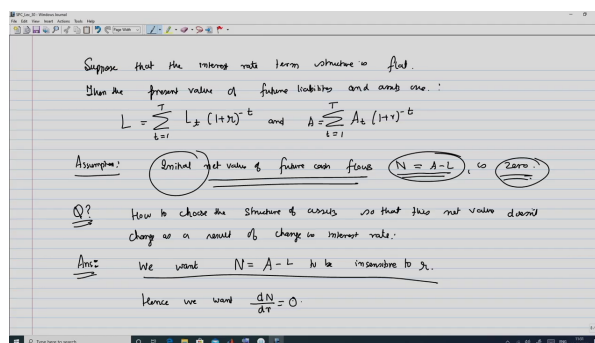 SPC_Lec_30 - Windows Journal
File Edit View Insert Actions Tools Help
Page Width
Suppose that the interest rate term structure is flat.
Then the present value of future liabilities and assets are :
L = ∑_{t=1}^{T} L_t (1+r)^{-t} and A = ∑_{t=1}^{T} A_t (1+r)^{-t}
Assumption: Initial net value of future cash flows (N = A-L), is zero.
Q? How to choose the structure of assets so that this net value doesn't
change as a result of change in interest rate.
Ans: We want N = A - L to be insensitive to r.
Hence we want dN/dr = 0.
Type here to search
ENG